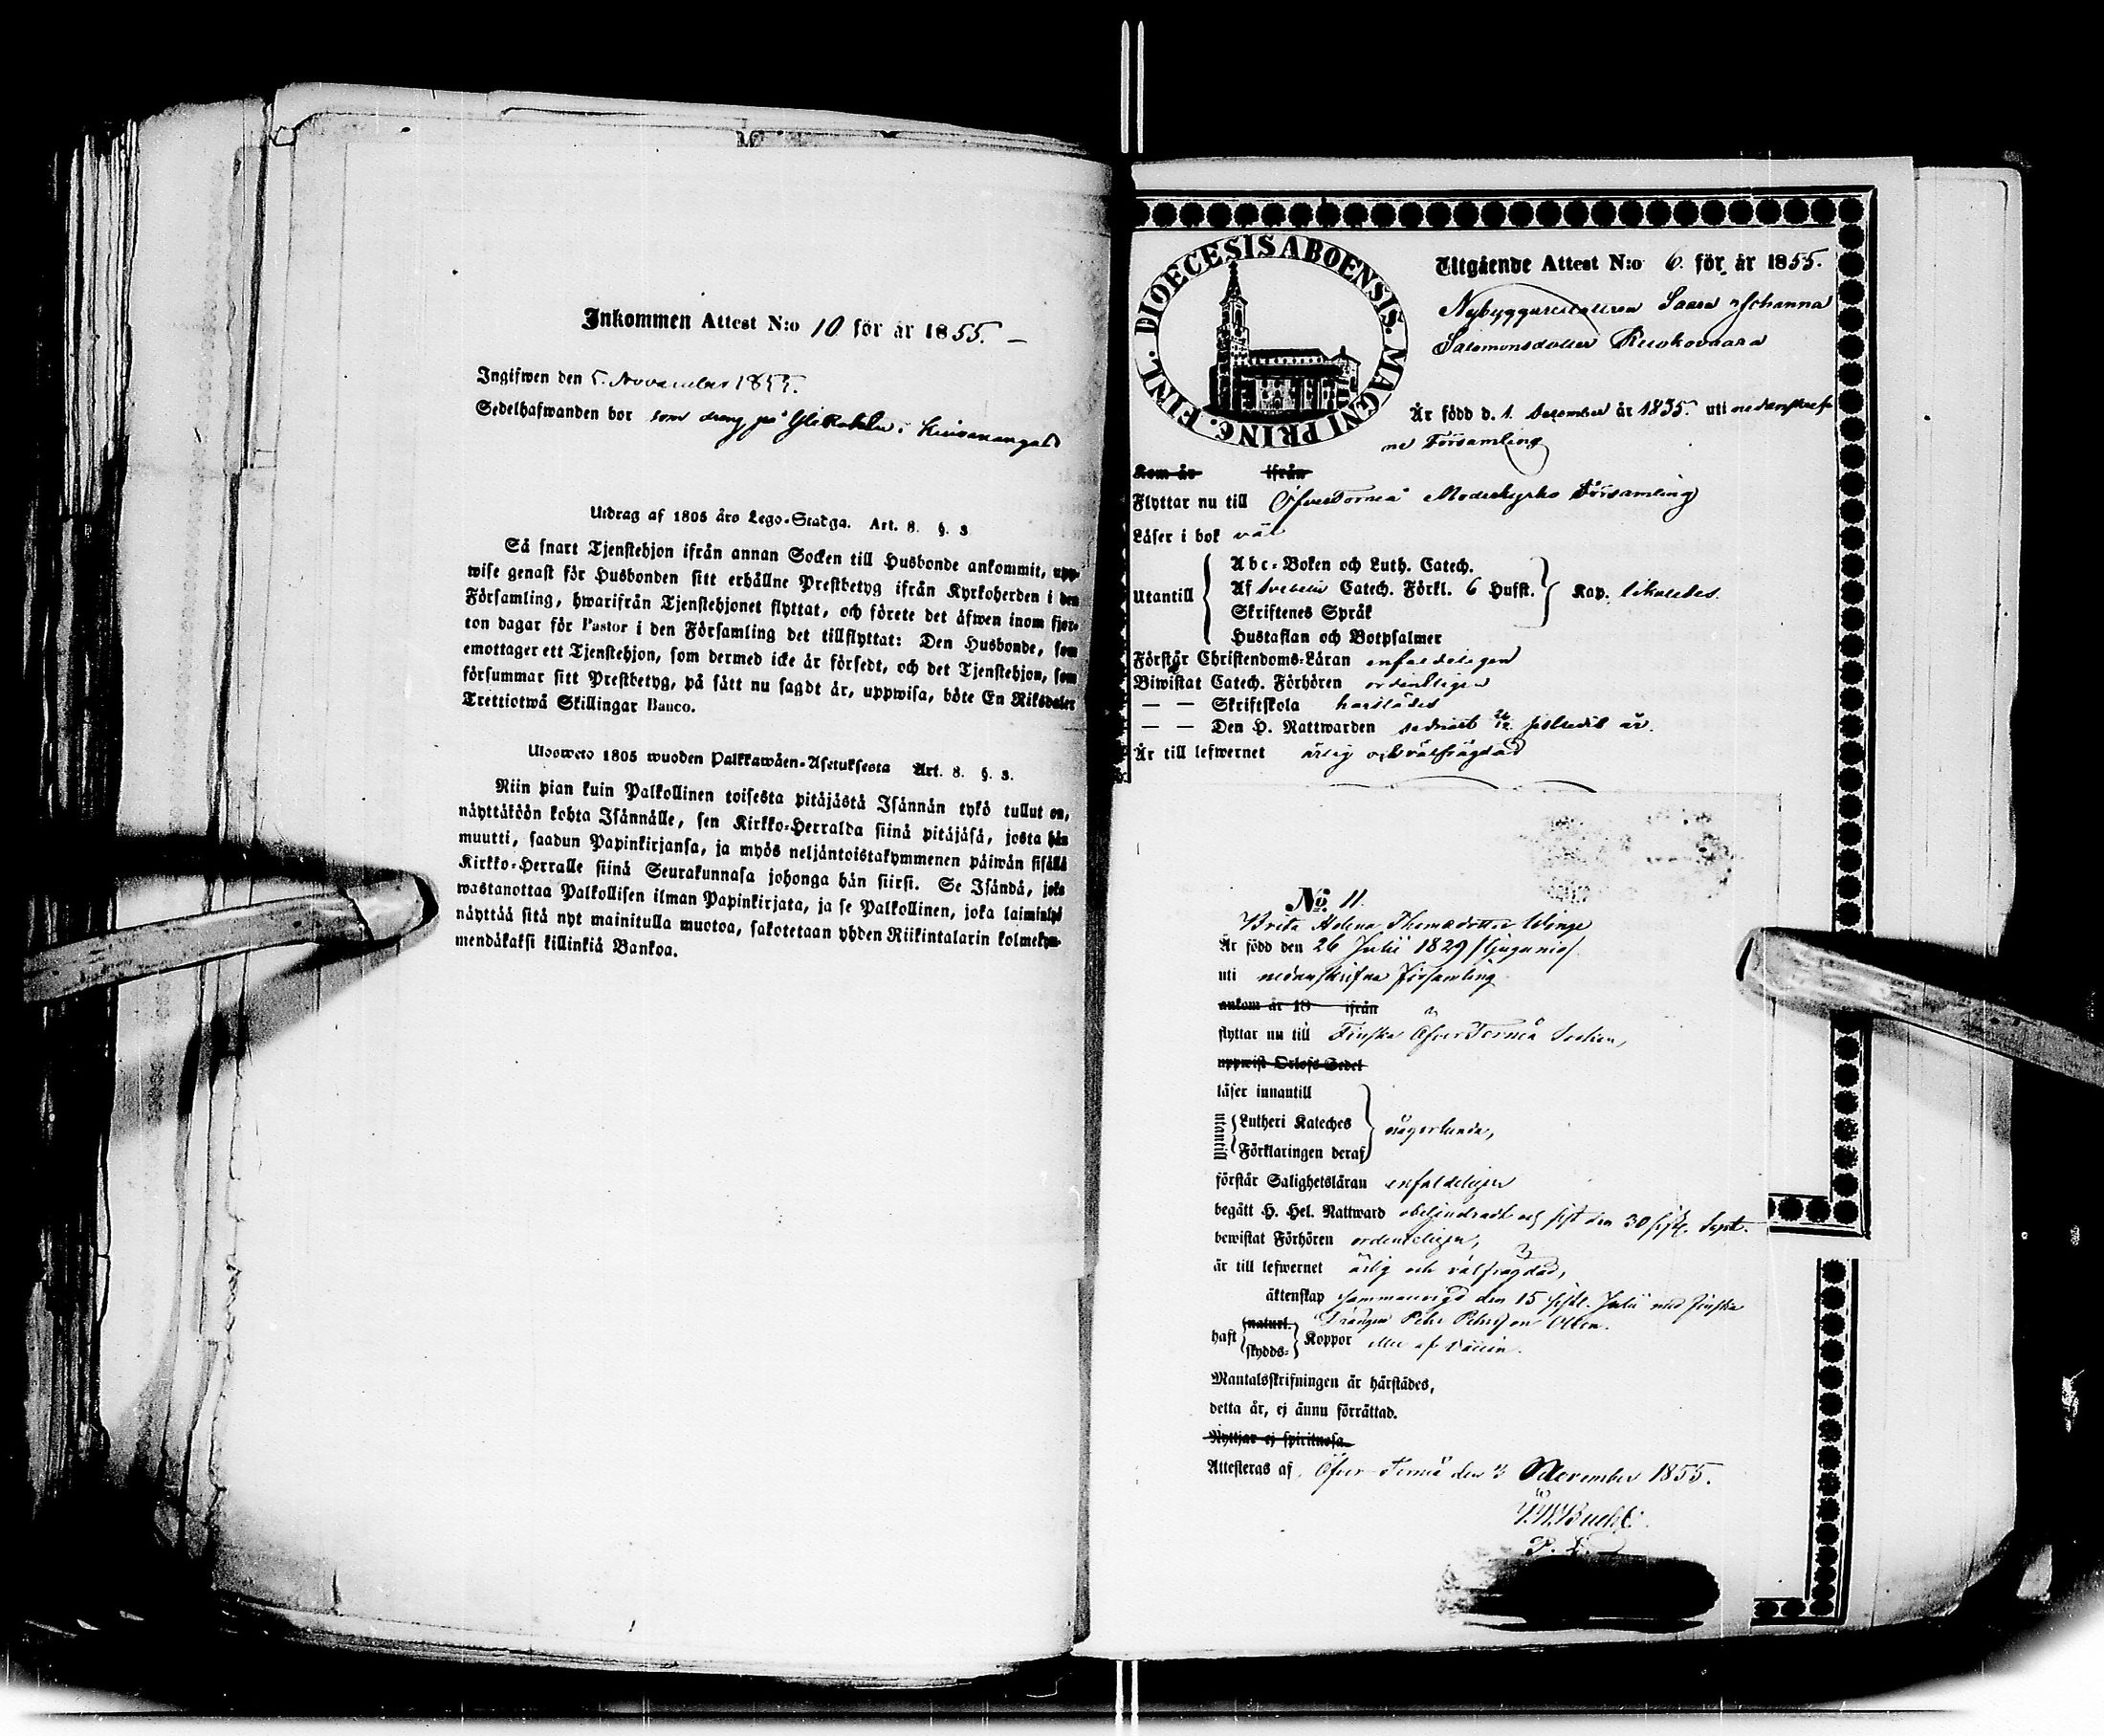 Inkommen Attest N:o 10 för år 1855.
Ingifwen den 5. November 1855.
Sedelhafwanden bor som dräng på
Utdrag af 1805 års Lego-Stadga. Art. 8. §. 3
Så snart Tjenstehjon ifrån annan Socken till Husbonde ankommit, upp-
wise genast för Husbonden sitt erhållne Prestbetyg ifrån Kyrkoherden i den
Församling, hwarifrån Tjenstehjonet flyttat, och förete det äfwen inom fjor-
ton dagar för Pastor i den Församling det tillflyttat: Den Husbonde, som
emottager ett Tjenstehjon, som dermed icke är försedt, och det Tjenstehjon, som
försummar sitt Prestbetyg, på sätt nu sagdt är, uppwisa, böte En Riksdaler
Trettiotwå Skillingar Banco.
Ulosweto 1805 wuoden Palkkawäen-Asetuksesta Art. 8. §. 3.
Niin pian kuin Palkollinen toisesta pitäjästä Isännän tykö tullut on,
näyttäköön kohta Isännälle, sen Kirkko-Herralda siinä pitäjäsä, josta hän
muutti, saadun Papinkirjansa, ja myös neljäntoistakymmenen päiwän sisällä
Kirkko-Herralle siinä Seurakunnasa johonga hän siirsi. Se Isändä, joka
wastanottaa Palkollisen ilman Papinkirjata, ja se Palkollinen, joka laiminlyö
näyttää sitä nyt mainitulla muotoa, sakotetaan yhden Riikintalarin kolmekym-
mendäkaksi killinkiä Bankoa.
DIOECESIS ABOENSIS. MAGNI PRINC. FINL.
Utgående Attest N:o 6. för år 1855.
Nybyggaredottren Saara Johanna
Salomonsdotter Kuokovaara
Är född d. 1. December år 1835. uti nedanskref-
ne Församling
Kom år ifrån
Flyttar nu till ÖfverTorneå Moderkyrko Församling
Läser i bok väl
Utantill
Abc-Boken och Luth. Catech.
Af Svebelii Catech. Förkl. 6 Hufst.
Skriftenes Språk
Hustaflan och Botpsalmer
Kap. likaledes.
Förstår Christendoms-Läran enfaldeligen
Biwistat Catech. Förhören ordentligen
— — Skriftskola härstädes
— — Den H. Nattwarden sednast 26/12 sistledit år.
Är till lefwernet ärlig och välfrägdad
No. 11.
Brita Helena Thomasdotter Winge
Är född den 26 Julii 1829
uti nedanskrifna Församling
ankom år 18 ifrån
flyttar nu till Finska Öfver Torneå Socken,
uppwist Orlofs-Sedel
läser innantill
utantill
Lutheri Kateches
Förklaringen deraf
någorlunda,
förstår Salighetsläran enfaldeligen
begått H. Hel. Nattward obehindradt och sist den 30 sistl. Sept.
bewistat Förhören ordentligen,
är till lefwernet ärlig och välfrägdad,
äktenskap sammanvigd den 15 sistl. Julii med finska
Drängen Pehr Pehrsson
haft naturl. skydds- Koppor
Mantalsskrifningen är härstädes,
detta år, ej ännu förrättad.
Nyttjar ej spirituosa.
Attesteras af, Öfver-Torneå den 3 November 1855.